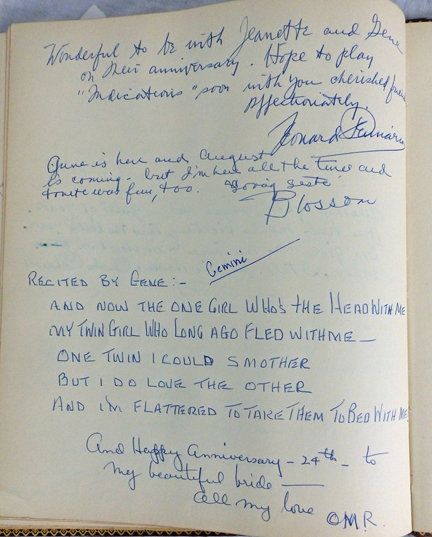 Wonderful to be with Jeanette and Gene
on their anniversary. Hope to play
"Indications" soon with you cherished
Affectionately,
June is here and August
is coming - but I'm here all the time and
tonite was fun, too.
Blossom
Gemini
RECITED BY GENE:-
AND NOW THE ONE GIRL WHO'S THE HEAD WITH ME
MY TWIN GIRL WHO LONG AGO FLED WITH ME —
ONE TWIN I COULD SMOTHER
BUT I DO LOVE THE OTHER
AND I'M FLATTERED TO TAKE THEM TO BED WITH ME
And Happy Anniversary - 24th - to
my beautiful bride —
all my love